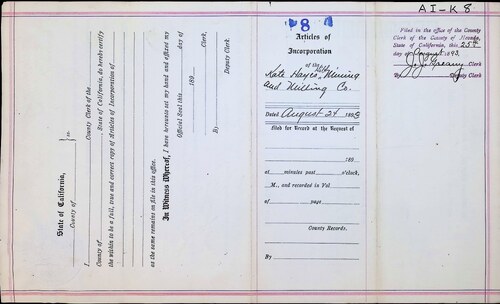 AI-K 8
8
Articles of
Incorporation
of the
Kate Hayes Mining
and Milling Co.
Dated August 24 189
Filed for Record at the Request of
189
at minutes past o'clock,
M., and recorded in Vol
of page
County Records.
By
Filed in the office of the County
Clerk of the County of Nevada,
State of California, this 25th
day of August 1893.
J. J. Greany Clerk
By Deputy Clerk
State of California,
County of ss.
I County Clerk of the
County of , State of California, do hereby certify
the within to be a full, true and correct copy of Articles of Incorporation of
as the same remains on file in this office.
In Witness Whereof, I have hereunto set my hand and affixed my
Official Seal this day of
189
Clerk,
By
Deputy Clerk.